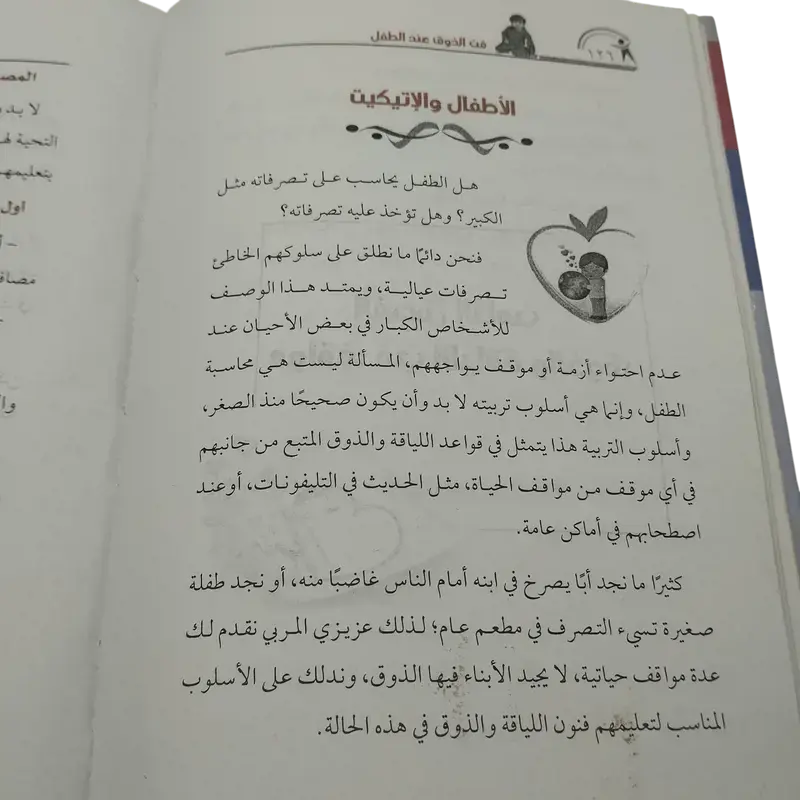 ١٢٦
فن الذوق عند الطفل
الأطفال والإتيكيت
هل الطفل يحاسب على تصرفاته مثل
الكبير؟ وهل تؤخذ عليه تصرفاته؟
فنحن دائمًا ما نطلق على سلوكهم الخاطئ
تصرفات عيالية، ويمتد هذا الوصف
للأشخاص الكبار في بعض الأحيان عند
عدم احتواء أزمة أو موقف يواجههم، المسألة ليست هي محاسبة
الطفل، وإنما هي أسلوب تربيته لا بد وأن يكون صحيحًا منذ الصغر،
وأسلوب التربية هذا يتمثل في قواعد اللياقة والذوق المتبع من جانبهم
في أي موقف من مواقف الحياة، مثل الحديث في التليفونات، أوعند
اصطحابهم في أماكن عامة.
كثيرًا ما نجد أبًا يصرخ في ابنه أمام الناس غاضبًا منه، أو نجد طفلة
صغيرة تسيء التصرف في مطعم عام؛ لذلك عزيزي المربي نقدم لك
عدة مواقف حياتية، لا يجيد الأبناء فيها الذوق، وندلك على الأسلوب
المناسب لتعليمهم فنون اللياقة والذوق في هذه الحالة.
لا بد
بتعليمهم
اول